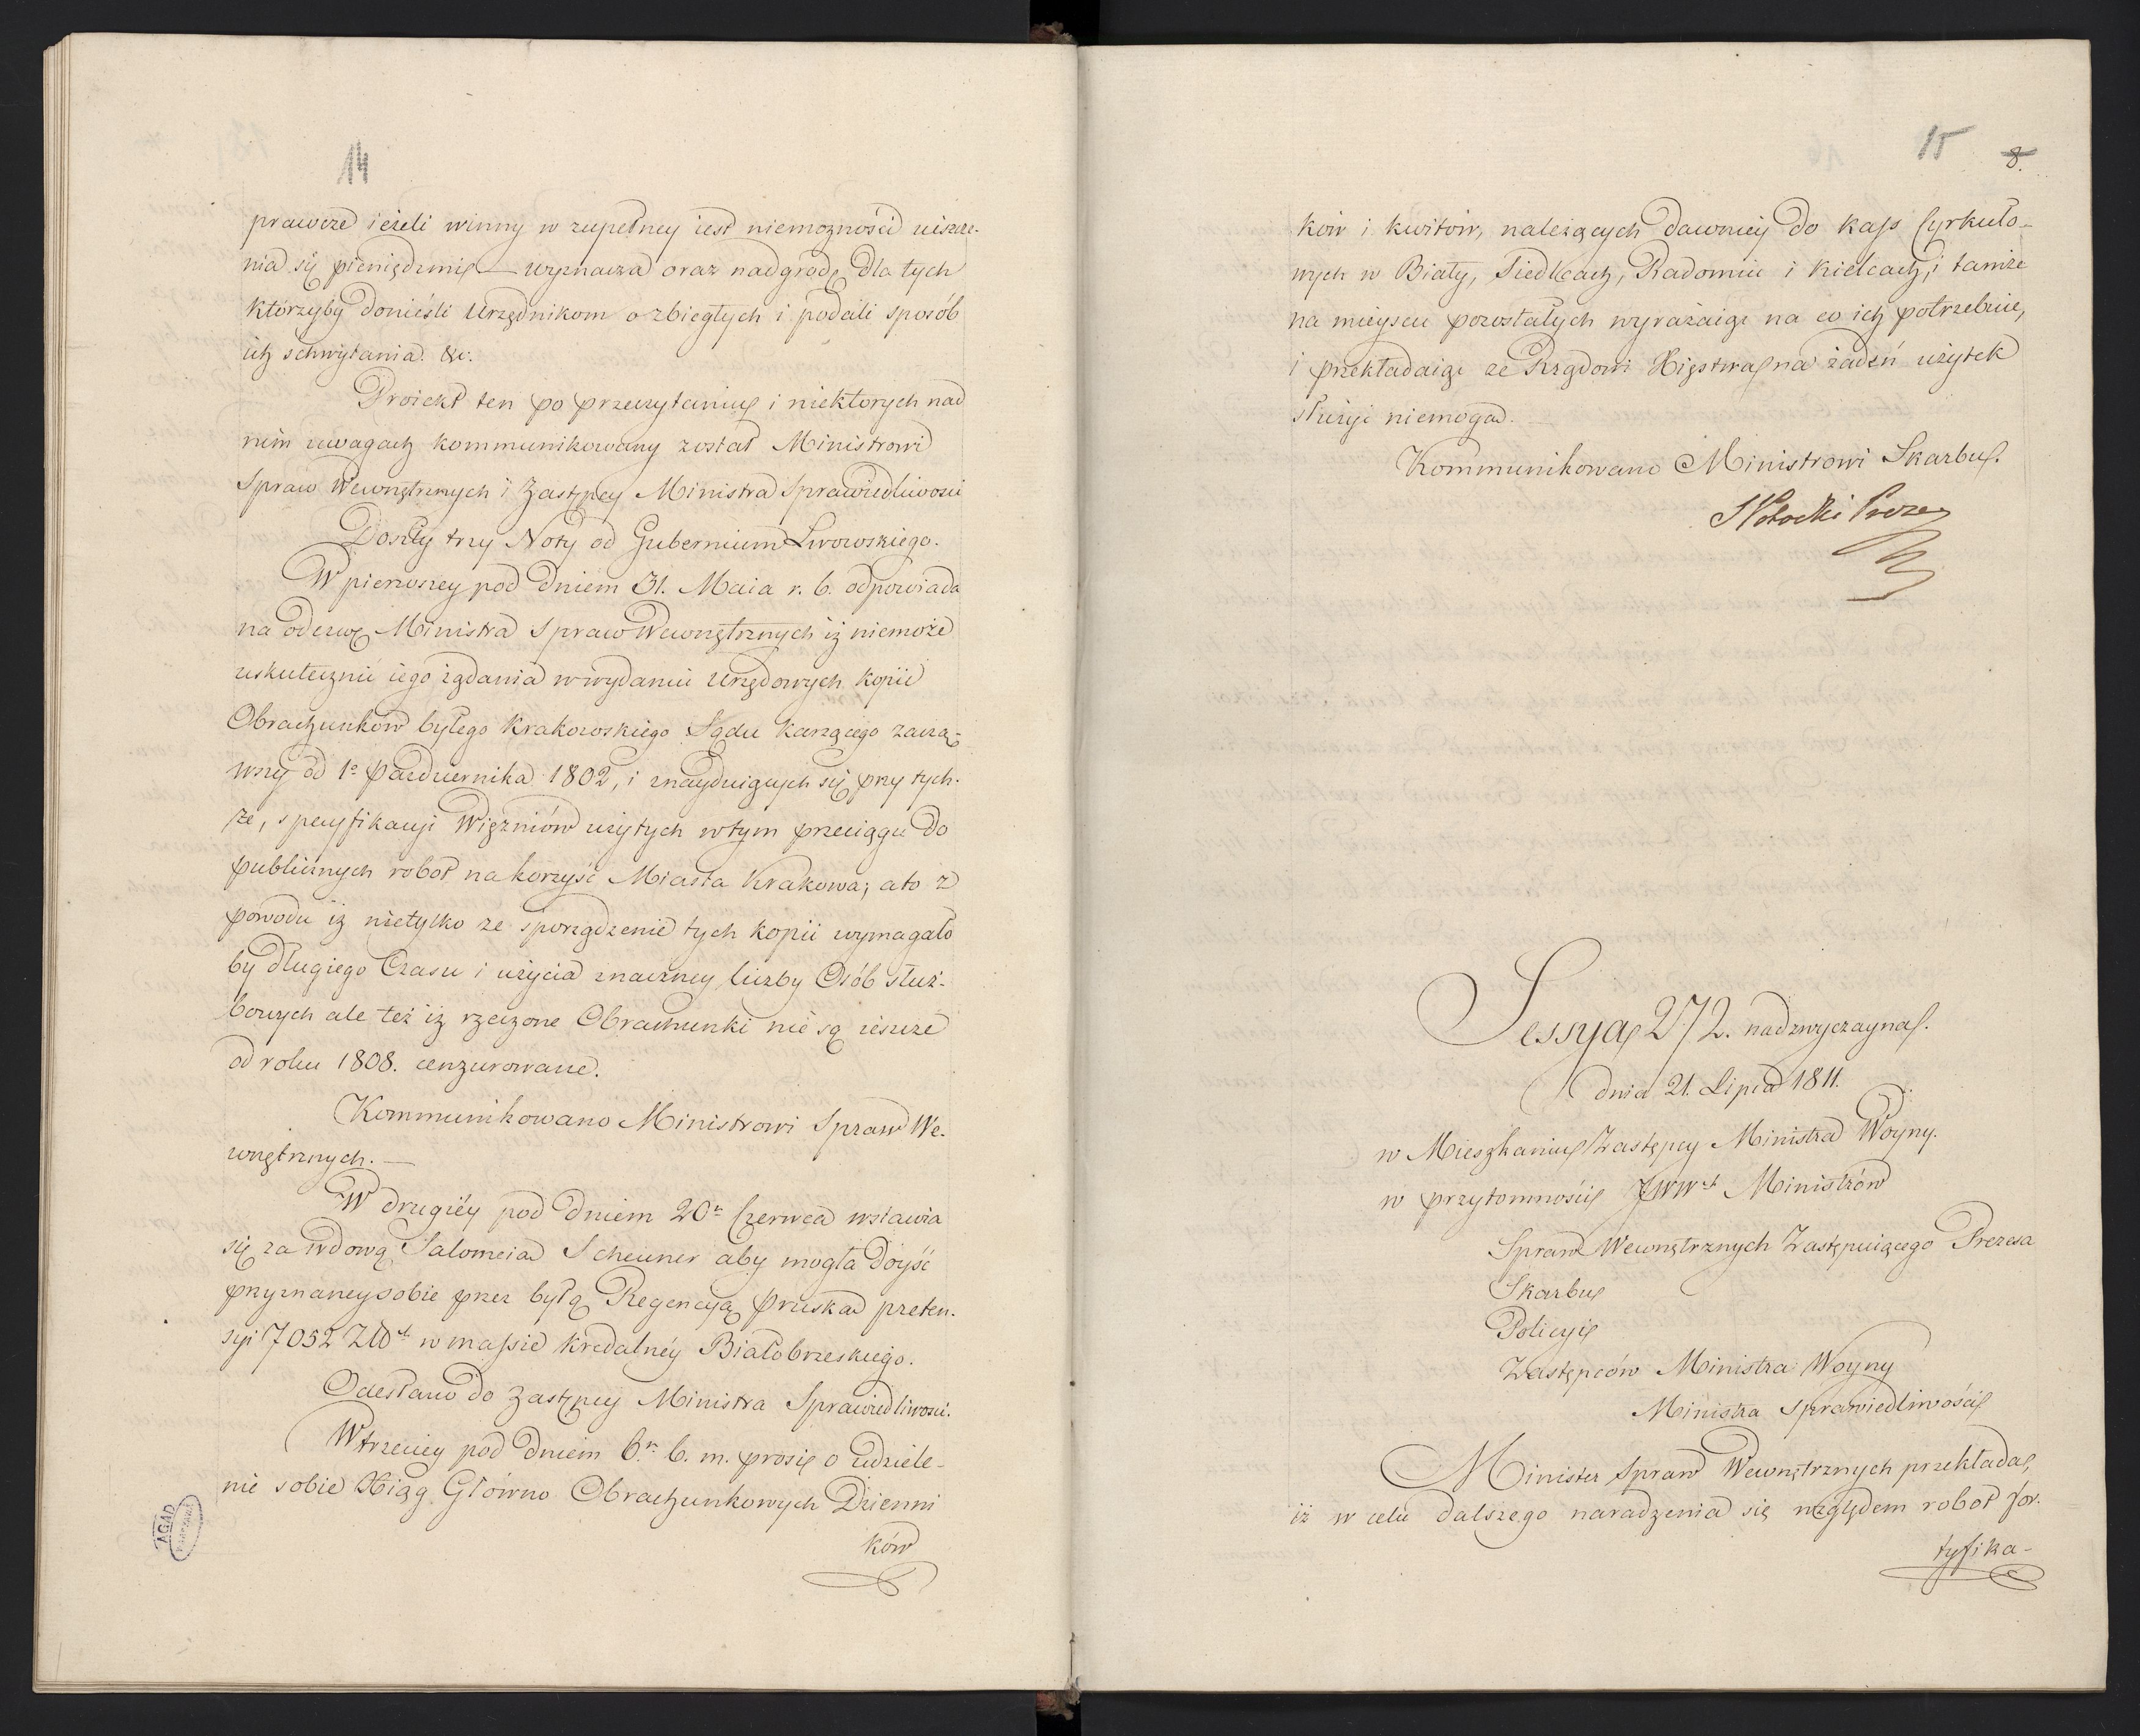 14
prawcze ieżeli winny w zupełney iest niemożności uiszcze-
nia się pieniędzmi — wyznacza oraz nadgrodę dla tych
którzyby donieśli Urzędnikom o zbiegłych i podali sposób
ich schwytania. &c.
Proiekt ten po przeczytaniu i niektorych nad
nim uwagach kommunikowany został Ministrowi
Spraw Wewnętrznych i Zastępcy Ministra Sprawiedliwosci
Doszły trzy Noty od Gubernium Lwowskiego.
W pierwszey pod dniem 31. Maia r. b. odpowiada
na odezwę Ministra Spraw Wewnętrznych iż niemoże
uskutecznić iego żądania w wydaniu Urzędowych kopii
Obrachunków byłego Krakowskiego Sądu karzącego zacza-
wszy od 1o Pazdziernika 1802, i znayduiących się przy tych-
że, specyfikacyi Więzniów użytych w tym przeciągu do
publicznych robot na korzyść Miasta Krakowa; a to z
powodu iż nietylko ze sporządzenie tych kopii wymagało
by długiego Czasu i użycia znaczney liczby Osób służ-
bowych ale też iż rzeczone Obrachunki nie są ieszcze
od roku 1808. cenzurowane.
Kommunikowano Ministrowi Spraw We-
wnętrznych. —
W drugiéy pod dniem 20n Czerwca wstawia
się za wdową Salomeia Scheuner aby mogła doyść
przyznaney sobie przez byłą Regencyą Pruska preten-
syi 7052 Złt w massie kredalnéy Białobrzeskiego.
Odesłano do Zastępcy Ministra Sprawiedliwosci.
W trzeciey pod dniem 6n b. m. prosi o udziele-
nie sobie Xiąg Główno Obrachunkowych Dzienni
ków
AGAD
15
8.
ków i kwitów, należących dawniey do kass Cyrkuło-
wych w Biały, Siedlcach, Radomiu i Kielcach, i tamże
na mieyscu pozostałych wyrażaiąc na co ich potrzebuie,
i przekładaiąc ze Rządowi Xięstwa na żaden użytek
służyć niemogą.
Kommunikowano Ministrowi Skarbu.
S Potocki Prezes
Sessya 272. nadzwyczayna.
dnia 21. Lipca 1811.
w Mieszkaniu Zastępcy Ministra Woyny.
w przytomności JWWch Ministrów
Spraw Wewnętrznych Zastępuiącego Prezesa
Skarbu
Policyi
Zastępców Ministra Woyny
Ministra Sprawiedliwości
Minister Spraw Wewnętrznych przekłada,
iż w celu dalszego naradzenia się względem robot for-
tyfika-